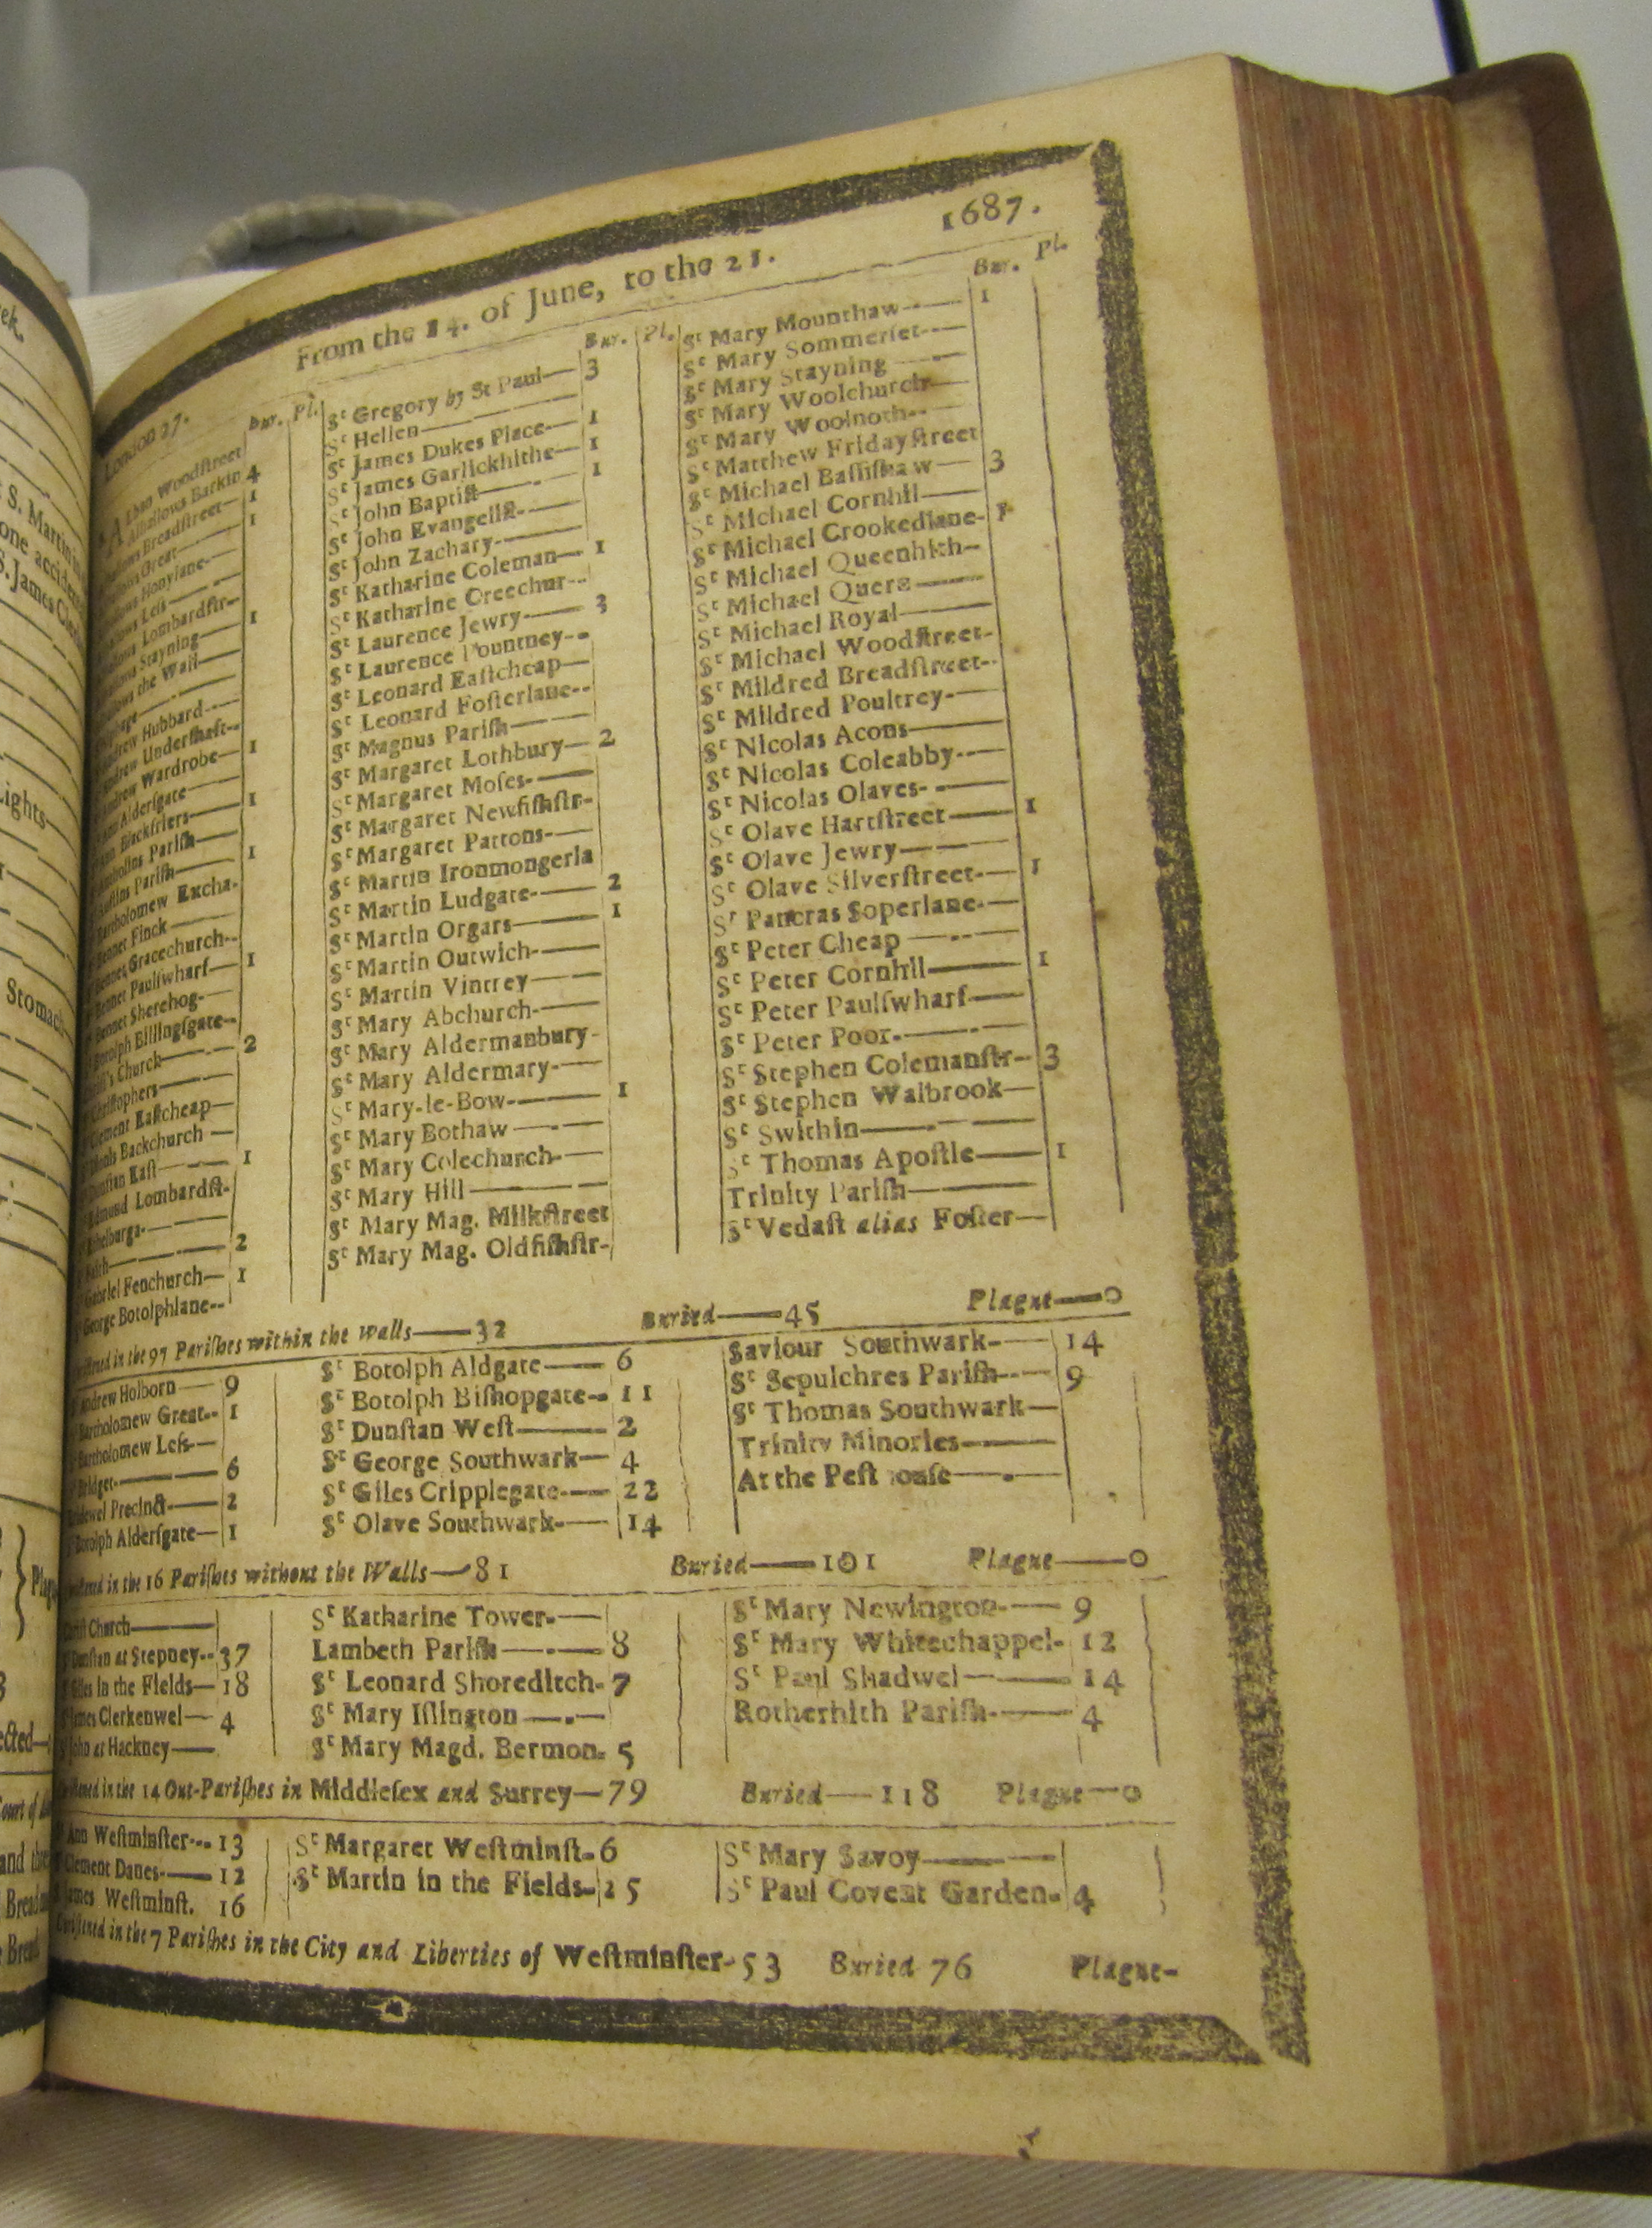 London 27.
From the 14. of June, to the 21.
1687.
Bur. Pl.
Alban Woodſtreet
Alhallows Barkin 4
Breadſtreet— 1
Great— 1
Honylane-
Leſs
Lombardſtr-
Stayning— 1
the Wall—
Hubbard
Underſhaft-
Wardrobe— 1
Alderſgate
Blackfriers— 1
Pariſh—
Pariſh— 1
Bartholomew Excha-
Bennet Finck
Bennet Gracechurch--
Bennet Paulſwharf— 1
Bennet Sherehog-
Botolph Billingſgate--
Church— 2
Chriſtophers
Clement Eaſtcheap—
Backchurch —
Dunſtan Eaſt— 1
Edmund Lombardſt-
Ethelburga-
Faith— 2
Gabriel Fenchurch— 1
George Botolphlane--
Bur. Pl.
Sᵗ Gregory by St Paul— 3
Sᵗ Hellen
Sᵗ James Dukes Place— 1
Sᵗ James Garlickhithe— 1
Sᵗ John Baptiſt— 1
Sᵗ John Evangeliſt-
Sᵗ John Zachary-
Sᵗ Katharine Coleman— 1
Sᵗ Katharine Creechur--
Sᵗ Laurence Jewry— 3
Sᵗ Laurence Pountney--
Sᵗ Leonard Eaſtcheap—
Sᵗ Leonard Foſterlane--
Sᵗ Magnus Pariſh—
Sᵗ Margaret Lothbury— 2
Sᵗ Margaret Moſes-
Sᵗ Margaret Newfiſhſtr-
Sᵗ Margaret Pattons-
Sᵗ Martin Ironmongerla
Sᵗ Martin Ludgate-— 2
Sᵗ Martin Orgars— 1
Sᵗ Martin Outwich-
Sᵗ Martin Vintrey—
Sᵗ Mary Abchurch-
Sᵗ Mary Aldermanbury-
Sᵗ Mary Aldermary-
Sᵗ Mary-le-Bow-— 1
Sᵗ Mary Bothaw —
Sᵗ Mary Colechurch-
Sᵗ Mary Hill —
Sᵗ Mary Mag. Milkſtreet
Sᵗ Mary Mag. Oldfiſhſtr-
Bur. Pl.
Sᵗ Mary Mounthaw-- 1
Sᵗ Mary Sommerſet-
Sᵗ Mary Stayning
Sᵗ Mary Woolchurch—
Sᵗ Mary Woolnoth--
Sᵗ Matthew Fridayſtreet
Sᵗ Michael Baſſiſhaw— 3
Sᵗ Michael Cornhil—
Sᵗ Michael Crookedlane- 1
Sᵗ Michael Queenhith-
Sᵗ Michael Quern
Sᵗ Michael Royal—
Sᵗ Michael Woodſtreet-
Sᵗ Mildred Breadſtreet--
Sᵗ Mildred Poultrey-
Sᵗ Nicolas Acons
Sᵗ Nicolas Coleabby-
Sᵗ Nicolas Olaves-
Sᵗ Olave Hartſtreet— 1
Sᵗ Olave Jewry—
Sᵗ Olave Silverſtreet-— 1
Sᵗ Pancras Soperlane-
Sᵗ Peter Cheap —
Sᵗ Peter Cornhil— 1
Sᵗ Peter Paulſwharf—
Sᵗ Peter Poor-
Sᵗ Stephen Colemanſtr- 3
Sᵗ Stephen Walbrook—
Sᵗ Swithin—
Sᵗ Thomas Apoſtle— 1
Trinity Pariſh—
Sᵗ Vedaſt alias Foſter—
in the 97 Pariſhes within the walls—32 Buried—45 Plague—0
Andrew Holborn— 9
Bartholomew Great-- 1
Bartholomew Leſs—
Bridget-— 6
Precinct-— 2
Botolph Alderſgate— 1
Sᵗ Botolph Aldgate— 6
Sᵗ Botolph Biſhopgate-- 11
Sᵗ Dunſtan Weſt— 2
Sᵗ George Southwark— 4
Sᵗ Giles Cripplegate-— 22
Sᵗ Olave Southwark-— 14
Saviour Southwark-— 14
Sᵗ Sepulchres Pariſh-- 9
Sᵗ Thomas Southwark—
Trinity Minories—
At the Peſt
in the 16 Pariſhes without the Walls—81 Buried—101 Plague—0
Church—
Dunſtan at Stepney-- 37
Giles in the Fields— 18
James Clerkenwel— 4
John at Hackney—
Sᵗ Katharine Tower-—
Lambeth Pariſh — 8
Sᵗ Leonard Shoreditch- 7
Sᵗ Mary Iſlington —
Sᵗ Mary Magd. Bermon- 5
Sᵗ Mary Newington-— 9
Sᵗ Mary Whitechappel- 12
Sᵗ Paul Shadwel— 14
Rotherhith Pariſh-— 4
in the 14 Out-Pariſhes in Middleſex and Surrey—79 Buried—118 Plague—0
Ann Weſtminſter--- 13
Clement Danes-— 12
James Weſtminſt. 16
Sᵗ Margaret Weſtminſt- 6
Sᵗ Martin in the Fields- 25
Sᵗ Mary Savoy—
Sᵗ Paul Covent Garden- 4
in the 7 Pariſhes in the City and Liberties of Weſtminſter-53 Buried 76 Plague-
S. Martin
one
S. James
Lights
Stomach